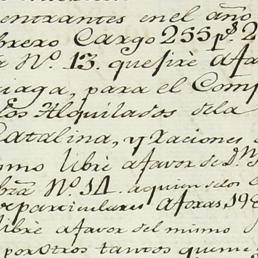 entrantes en el año
brero Cargo 255 p.s 2
Nº 13. que fire afa
ziaga, para el Com
los Alquilados dela
Catalina, y Raciones
mo libré afavor de D.n
bra Nº 14. aquien de los
particulares afoxas 19
libre afavor del mismo
por otros tantos que me